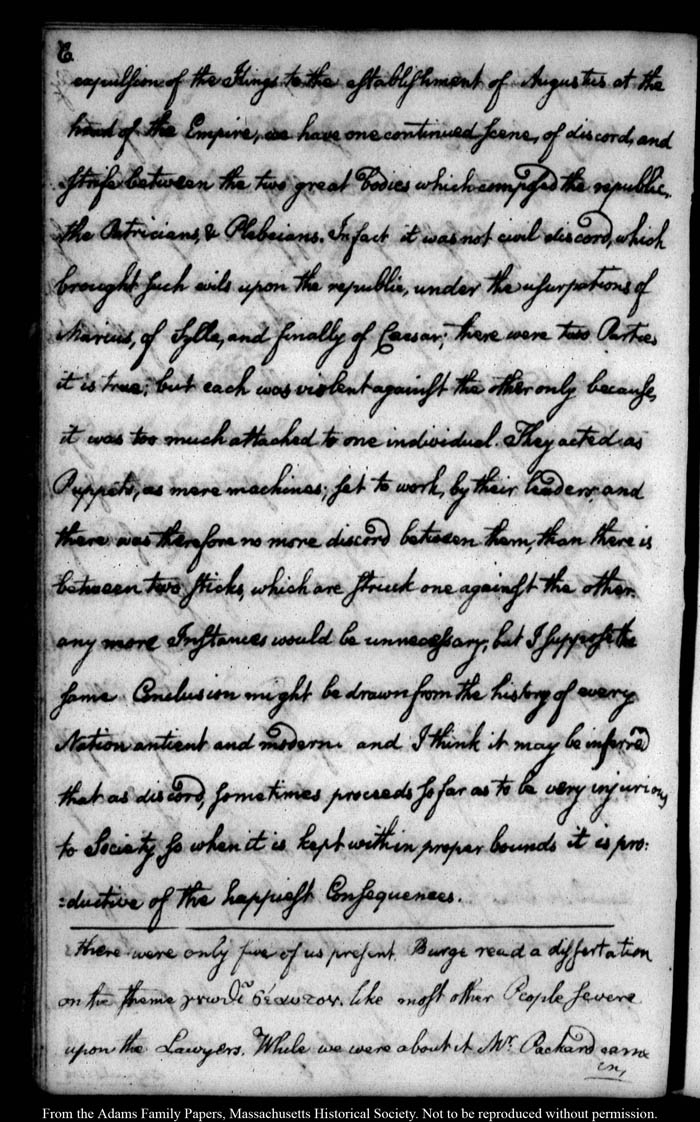 6
expulsion of the Kings to the establishment of Augustus at the
head of the Empire, we have one continued scene, of discord, and
strife between the two great Bodies which composed the republic,
the Patricians, & Plebeians. In fact it was not civil discord, which
brought such evils upon the republic, under the usurpations of
Marius, of Sylla, and finally of Caesar; there were two Parties
it is true; but each was violent against the other only because,
it was too much attached to one individual. They acted as
Puppets, as mere machines; set to work, by their leaders, and
there was therefore no more discord between them, than there is
between two sticks, which are struck one against the other.
any more Instances would be unnecessary, but I suppose the
same Conclusion might be drawn from the history of every
Nation antient and modern. and I think it may be inferred
that as discord, sometimes proceeds so far as to be very injurious
to Society, so when it is kept within proper bounds it is pro:
:ductive of the happiest Consequences.
there were only five of us present Burge read a dissertation
on the theme γνωθι σεαυτον. like most other People severe
upon the Lawyers. While we were about it Mr. Packard came
in,
From the Adams Family Papers, Massachusetts Historical Society. Not to be reproduced without permission.